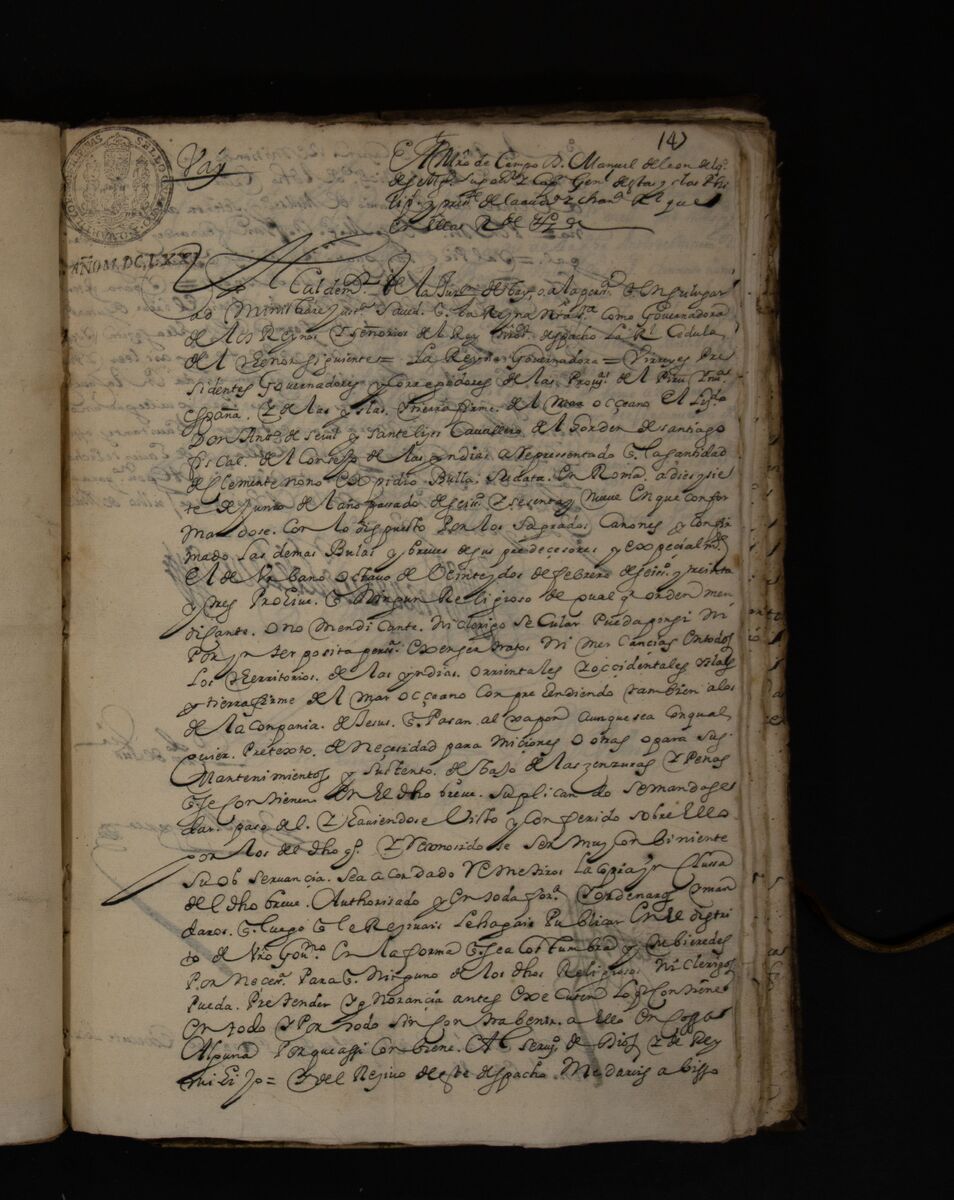 147
Vay
El Mro de Campo D. Manuel de Leon
Gour. y Capn. Genl. destas yslas Phi
lips. y presste. de la audª. y chanª. Rl. que
en ellas
AÑO M.DC.LXX
Alcalde mr. de la Jurn. de
ad ministrare justª. Saved. q. la Reyna nrª. srª. como Governadora
de los Reynos y señorios del Rey despacho la Rl. Cedula
del thenor siguiente = La Reyna Governadora = Virreyes Pre
sidentes Governadores y Correxidores de las Provs. del Piru nª.
españa. y de las yslas. y tierra firme. del mar occeano el Lizdo
Don Anto. de Sevil y Santelizes Cavallero. del horden de santiago
fiscal. del Consejo de las yndias a Representado q. la santidad
de Clemente nono expidio Bulla. su data. en Roma. a dies y sie
te de junio del año passado de seisos. y sesenta y nueve en que confor
mandose. con lo dispuesto Por los sagrados Canones y confir
mado las demas Bulas y breves de sus predecesores y especialmte.
el de Vrbano octavo de veinte y dos de febrero de seisos. y treinta
y tres Prohive. q. Ningun Religioso de qualqr. orden men
dicante. o no mendicante. ni clerigo secular Pueda por si Ni
Por ynterposita persª. exerser tratos Ni mercancias en todos
los territorios. de las yndias. orrientales y occidentales yslas
y tierra firme del mar occeano comprehendiendo tambien a los
de la Compania. de Jesus. q. Pasan al xapon aunque sea con qual
quier. Pretexto. de necesidad para miciones o otras o para sus
Mantenimientos y sustento. debajo de las zenzuras y Penas
q. se contienen en el dho breve. suplicando se mandase
dar. paso del. y haviendose visto y conferido sobre ello
por los del dho qº. y reconosido se ser muy conbiniente
su observançia. sea acordado remetiros la copia yn clussa
del dho breve. Authorisado y en toda forª. y ordenaros y man
daros. q. luego q. le Resivais le hagais Publicar en el distri
to de vro Govno. en la forma q. sea costumbra y hubieredes
Por necesº. Para q. Ninguno de los dhos Religiosos Ni clerigos
Pueda. Pretender ygnorançia antes executen lo qe. contiene
en todo y Por todo sin contrabenir. a ello en cossa
alguna Porque assi conbiene. Al servº. de Dios y del Rey
mi Hijo = y del Reçivo deste despacho. Me dareis abisso